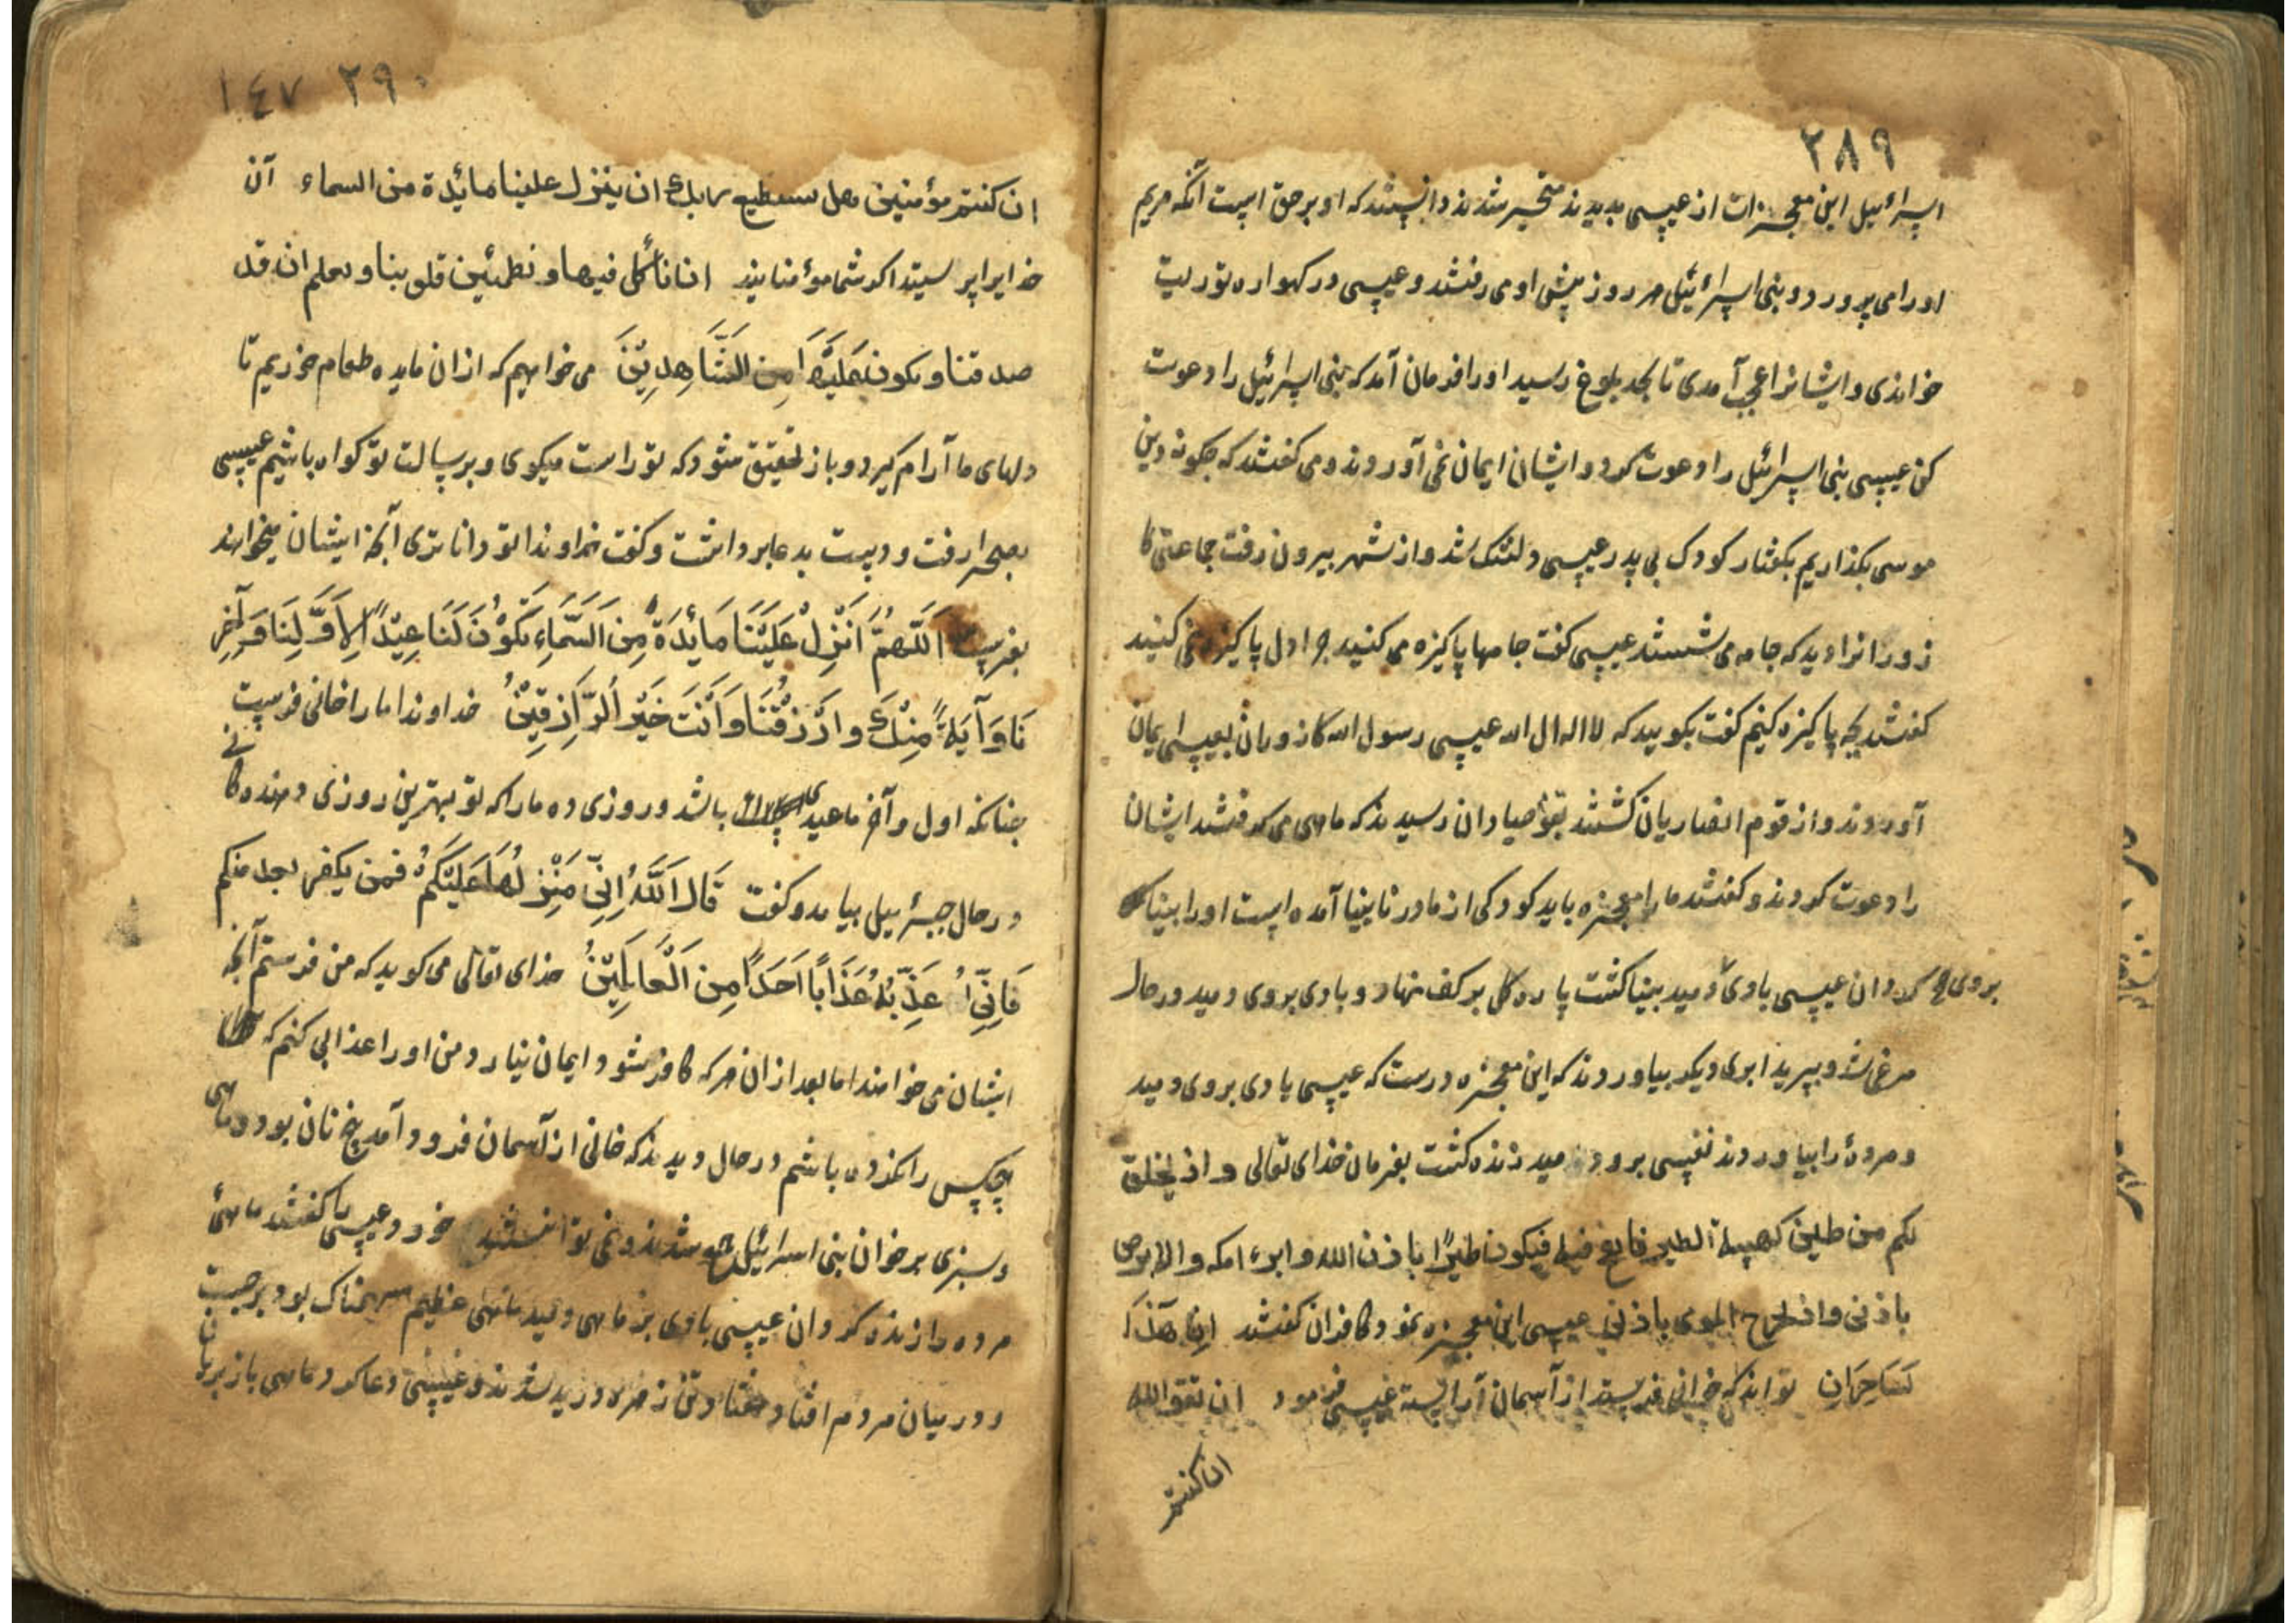 ٢٨٩
اسرائیل این معجزات از عیسی بدیدند متحیر شدند و دانستند که او بر حق است آنگه مریم
او را می پرورد و بنی اسرائیل هر روز پیش او می رفتند و عیسی در کهواره توریت
خواندی و ایشانرا عجب آمدی تا بحد بلوغ رسید او را فرمان آمد که بنی اسرائیل را دعوت
کن عیسی بنی اسرائیل را دعوت کرد و ایشان ایمان نمی آوردند و می کفتند که چکونه دین
موسی بکذاریم بکفتار کودک بی پدر عیسی دلتنک شد و از شهر بیرون رفت جماعتی کا
زورانرا دید که جامه می شستند عیسی کفت جامها پاکیزه می کنید چرا دل پاکیزه نمی کنید
کفتند بچه پاکیزه کنیم کفت بکویید که لا اله الا الله عیسی رسول الله کازوران بعیسی ایمان
آوردند و از قوم انصاریان کشتند بقوم صیادان رسیدند که ماهی می کرفتند ایشان
را دعوت کردند و کفتند ما را معجزه باید کودکی از مادر نابینا آمده است او را بینا
بروی کردان عیسی بادی دمید بینا کشت پاره کل بر کف نهاد و بادی بروی دمید در حال
مرغی شد و بپرید ابری دیکر بیاوردند که این معجزه درست که عیسی بادی بروی دمید
و مرده را بیاوردند نفسی برو دمید زنده کشت بفرمان خدای تعالی و اذ یخلق
لکم من طین کهیئة الطیر فانفخ فیه فیکون طیرًا باذن الله و ابرء امکه والابرص
باذنی و اذ تخرج الموتی باذنی عیسی این معجزه نمود کافران کفتند اِنَّ هَذَا
لَسَاحِرَانِ تواند که خوانی فرستد از آسمان آراسته عیسی فرمود ان تقو الله
ان کنتم
٢٩٠ ١٤٧
ان کنتم مؤمنین هل یستطیع ربك ان ینزل علینا مائدة من السماء آن
خدایرا پرسیتد اکر شما مؤمنانید ان نأکل فیها و نطمئین قلوبنا و نعلم ان قد
صدقتنا و نکون عَلَیْهَا مِنَ الشَّاهِدِیْنَ می خواهیم که از ان مایده طعام خوریم تا
دلهای ما آرام کیرد و باز تحقیق شود که تو راست میکوی و بر رسالت تو کواه باشیم عیسی
بصحرا رفت و دست بدعا برداشت و کفت خداوندا تو داناتری آنچه ایشان میخواهند
بفرست اَللَّهُمَّ اَنْزِلْ عَلَیْنَا مَائِدَةً مِنَ السَّمَاءِ تَکُوْنُ لَنَا عِیْدًا لِاَوَّلِنَا وَ آخِرِ
نَا وَ آیَةً مِنْكَ وَ ارْزُقْنَا وَ اَنْتَ خَیْرُ الرَّازِقِیْنَ خداوندا ما را خانی فرست
چنانکه اول و آخر ما عیدی باشد و روزی ده ما را که تو بهترین روزی دهنده کا نے
در حال جبرئیل بیامد و کفت قَالَ اللّٰهُ اِنِّي مُنَزِّلُهَا عَلَیْکُمْ فمن یکفر بعد منکم
فَاِنِّي اُعَذِّبُهُ عَذَابًا اَحَدًا مِنَ الْعَالَمِیْنَ خدای تعالی می کوید که من فرستم آنچه
ایشان می خواهند اما بعد از ان هر که کافر شود و ایمان نیارد من او را عذابی کنم که
هیچکس را نکرده باشم در حال دیدند که خانی از آسمان فرود آمد پنج نان بود و ماهی
و سبزی بر خوان بنی اسرائیل جمع شدند و نمی توانستند خورد عیسی را کفتند ماهی
مرده را زنده کردان عیسی بادی بر ماهی دمید ماهی عظیم سهمناک بود برجست
و در میان مردم افتاد هفتاد تن زهره درید شدند عیسی دعا کرد ماهی باز بریا